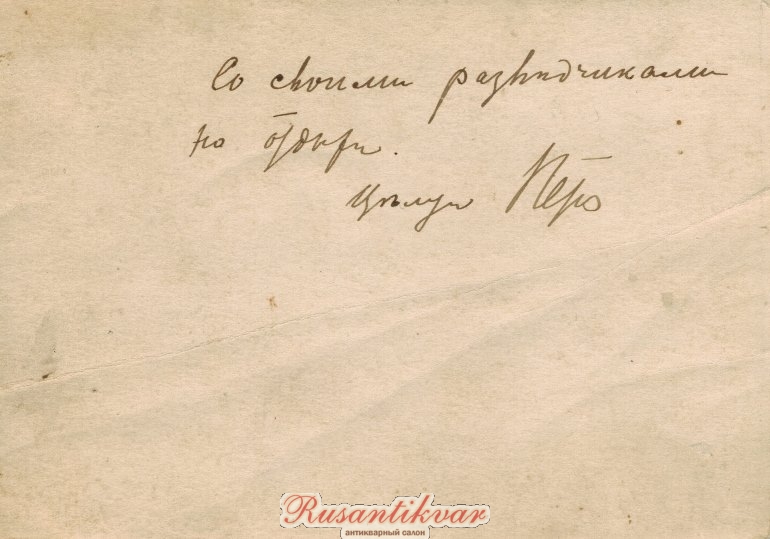 Со своими развѣдчиками
на отдыхѣ.
Цѣлую
Rusantikvar
антикварный салон